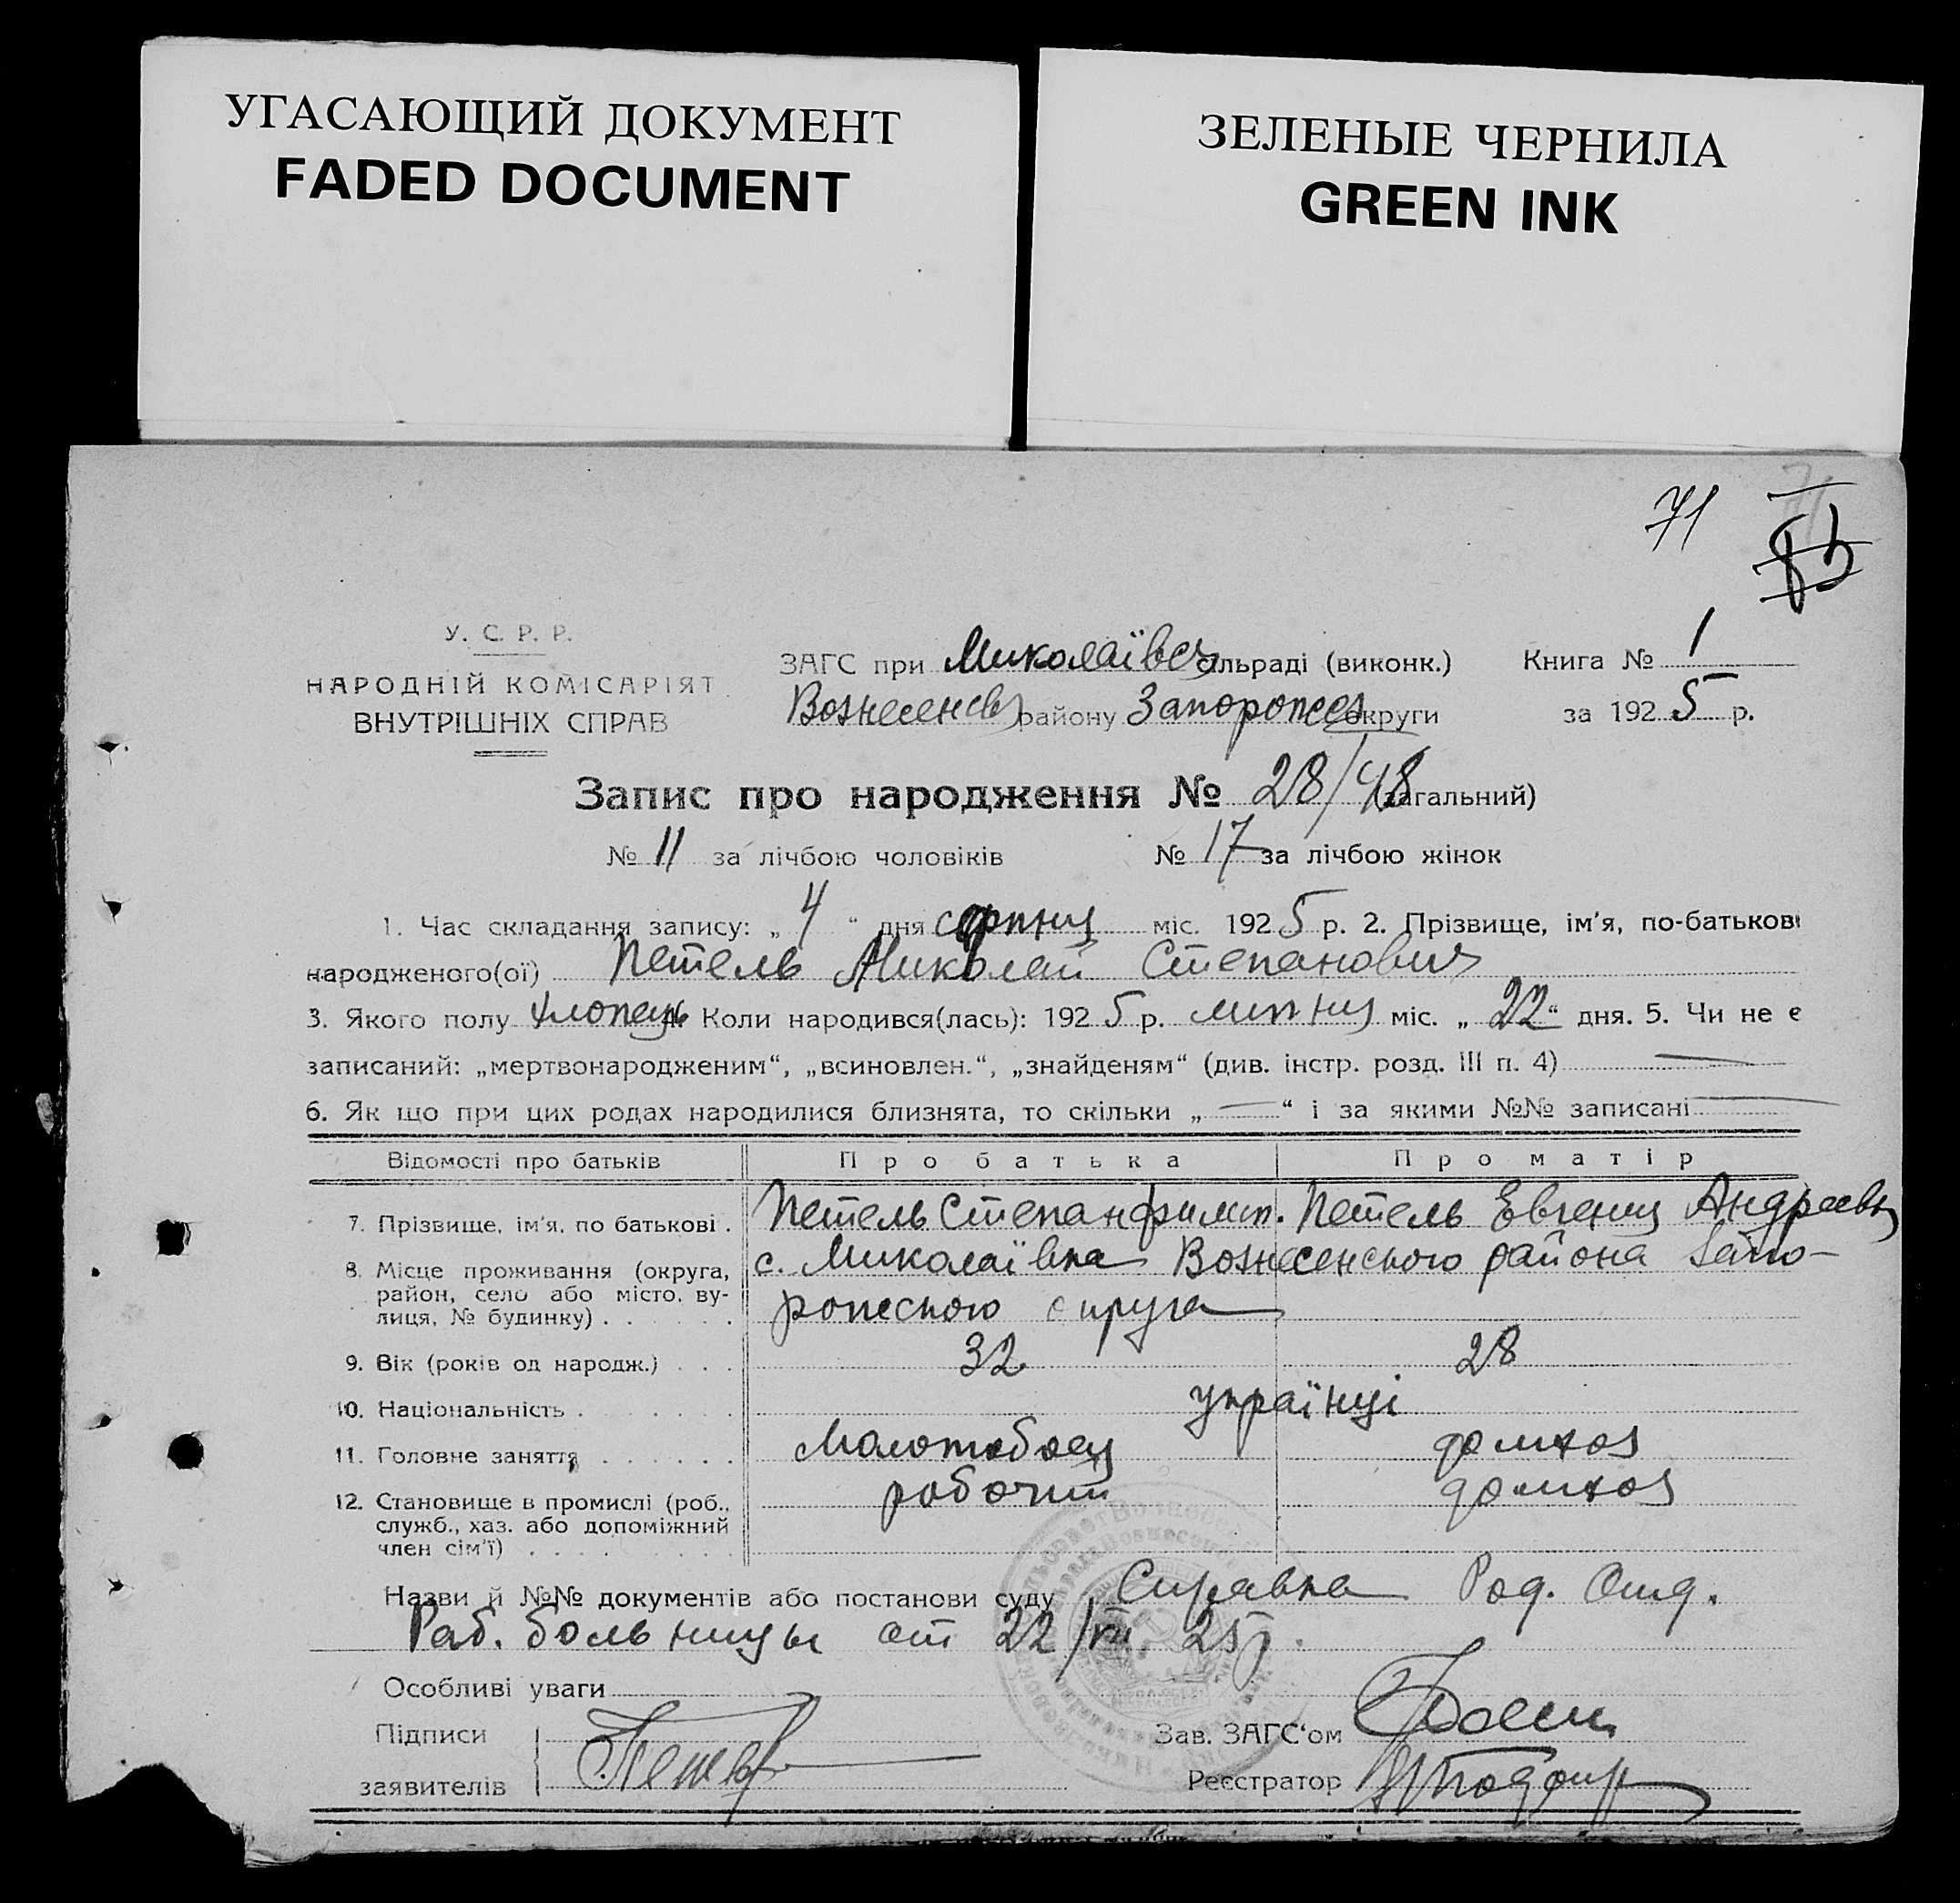 УГАСАЮЩИЙ ДОКУМЕНТ
FADED DOCUMENT
ЗЕЛЕНЫЕ ЧЕРНИЛА
GREEN INK
71
У. С. Р. Р.
НАРОДНІЙ КОМІСАРІЯТ
ВНУТРІШНІХ СПРАВ
ЗАГС при Миколаївськ сільраді (виконк.)
Вознесенськ району Запоропсея округи
Книга № 1
за 1925 р.
Запис про народження № 28/48 (загальний)
№ 11 за лічбою чоловіків № 17 за лічбою жінок
1. Час складання запису: „ 4 “ дня серпня міс. 1925 р. 2. Прізвище, ім'я, по-батькові
народженого(ої) Петель Миколай Степанович
3. Якого полу хлопець 4. Коли народився(лась): 1925 р. липня міс. „ 22 “ дня. 5. Чи не є
записаний: „мертвонародженим“, „всиновлен.“, „знайденям“ (див. інстр. розд. III п. 4) —
6. Як що при цих родах народилися близнята, то скільки „ — “ і за якими №№ записані —
Відомості про батьків Про батька Про матір
7. Прізвище, ім'я, по батькові . Петель Степан Филип. Петель Евгения Андреевн
8. Місце проживання (округа, район, село або місто, вулиця, № будинку) . . . . . с. Миколаївка Вознесенского района Запо-
рожского округа
9. Вік (років од народж.) . . . 32 28
10. Національність . . . . . українці
11. Головне заняття . . . . . . Молотобоец домхоз
12. Становище в промислі (роб., служб., хаз. або допоміжний член сім'ї) . . . . . . . . . рабочий домхоз
Назви й №№ документів або постанови суду Справка Род. Отд.
Раб. больницы от 22/VII 25 р.
Особливі уваги
Підписи
заявителів
Зав. ЗАГС'ом
Реєстратор